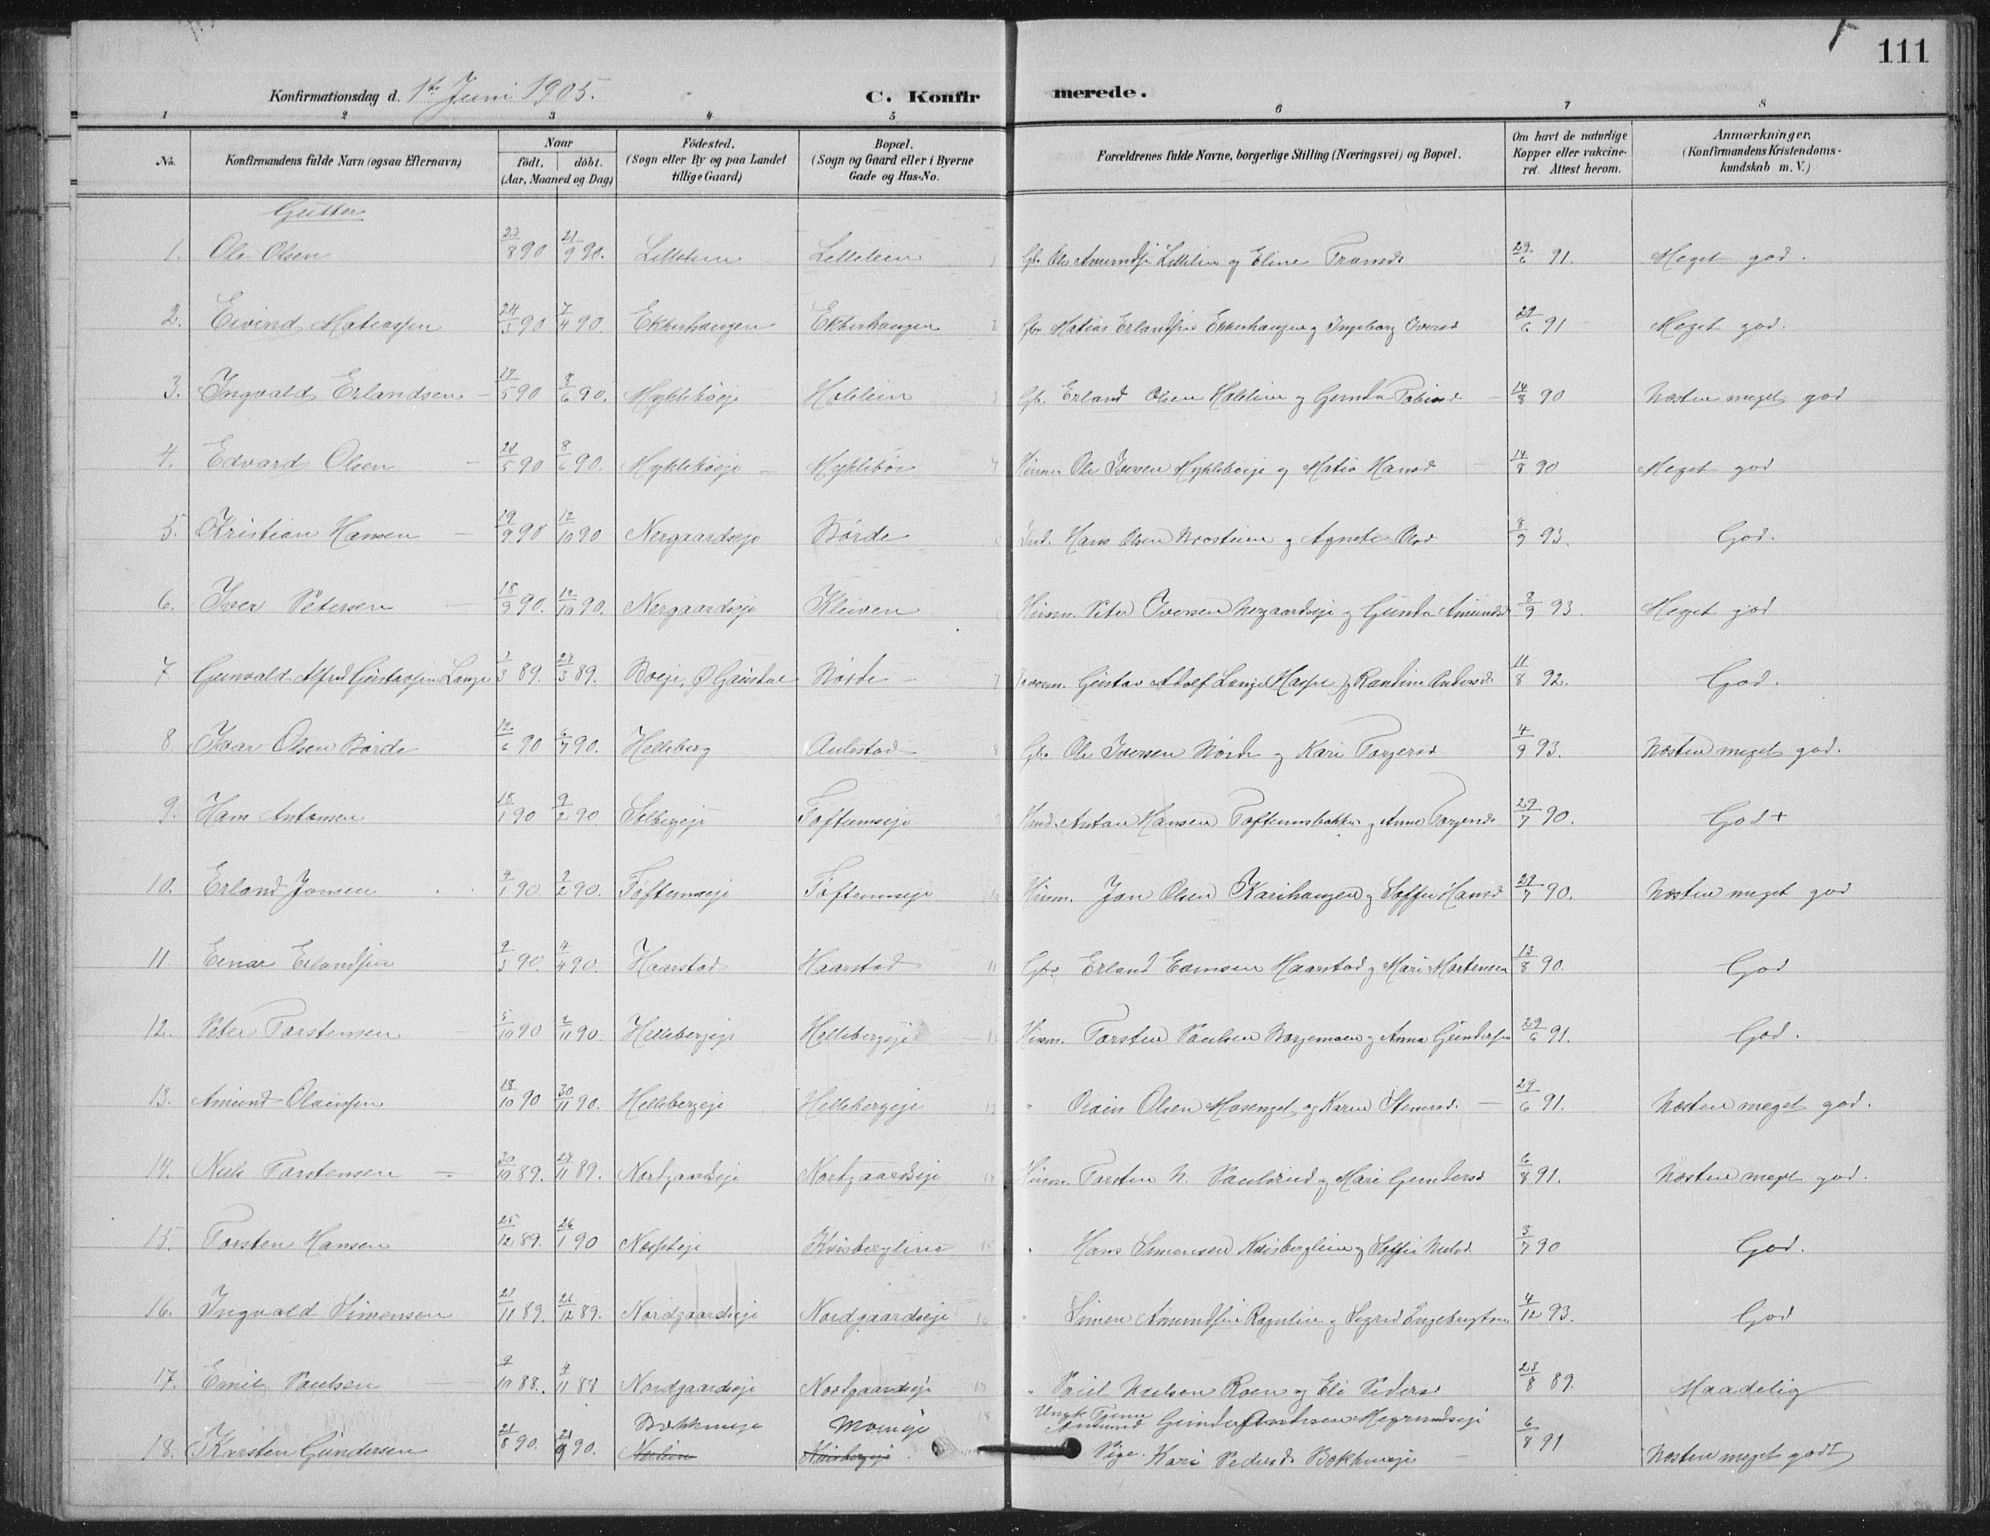 111
Konfirmationsdag d. 1ste Juni 1905.
C. Konfirmerede.
1 2 3 4 5 6 7 8
No. Konfirmandens fulde Navn (ogsaa Efternavn) Naar født. døbt. (Aar, Maaned og Dag) Fødested. (Sogn eller By og paa Landet tillige Gaard) Bopæl. (Sogn og Gaard eller i Byerne Gade og Hus-No. Forældrenes fulde Navne, borgerlige Stilling (Næringsvei) og Bopæl. Om havt de naturlige Kopper eller vakcineret. Attest herom. Anmærkninger. (Konfirmandens Kristendomskundskab m. V.)
Gutter
1. Ole Olsen 23/8 90 21/9 90. Lillelien Gb. Ole Amundsen Lillelien og Eline 29/6 91. Meget god.
2. Eivind Matiassen 24/3 90 7/4 90. Ekkerhaugen Ekkerhaugen 2 Gbr Matias Erlandsen Ekkerhaugen og Ingeborg Iversd 29/6 91 Meget god.
3. Ingvald Erlandsen 18/5 90 8/6 90. Myklebøeje 3 Gb. Erland Olsen og Tobiasd 14/8 90 Næsten meget god
4. Edvard Olsen 21/5 90 8/6 90. Myklebøeje Myklebøe 4 Husm. Ole Iversen Myklebøeje og Matia Hansd 14/8 90 Meget god
5. Kristian Hansen 19/9 90 12/10 90 Nergaardseje Børde Hans Olsen og Agnete Olsd 8/9 93. God.
6. Iver Petersen 18/9 90. 12/10 90. Nergaardseje Kleiven Husm. Peter Iversen Nergaardseje og Gunda Amundsd 8/9 93. Meget god
7 Gunvald Alfred Gustavsen Lange 1/3 89. 24/3 89. Boeje, Ø Gausdal Børde 7 Gustav Adolf Lange og Randine Andersd 11/8 92. God.
8. Ivar Olsen Børde 12/6 90 6/7 90. Helleberg Aulestad 8 Gbr Ole Iversen Børde og Kari Torgersd 4/9 93. Næsten meget god.
9. Hans Antonsen 18/1 90 9/2 90 Solbergeje Toftumseje Anton Hansen Toftumsbakken og Anne 29/7 90. God +
10. Erland Jonsen 4/1 90 2/2 90. Toftumseje Toftumseje 10 Husm. Jon Olsen Karihaugen og Soffie Hansd 29/7 90. Næsten meget god
11 Einar Erlandsen 9/3 90. 4/4 90. Haarstad Haarstad 11 Gbr. Erland Haarstad og Mari Mortensen 13/8 90. God
12. Peter Torstensen 5/10 90 2/11 90. Hellebergeje Hellebergeje Husm. Torsten Paulsen og Anna Gundersen 29/6 91. God.
13. Amund Olaissen 18/10 90 30/11 90. Hellebergeje Hellebergeje 13 " Olsen og Karen 29/6 91. Næsten meget god.
14. Niels Torstensen 30/10 89. 24/11 89. Nordgaardseje Nordgaardseje 14 Husm. Torsten N. og Mari Gundersd 6/8 91. Næsten meget god.
15. Torsten Hansen 25/12 89. 26/1 90 Kvisberglien 15 " Hans Simensen Kvisberglien og Soffie Nielsd 3/7 90 God.
16. Ingvald Simensen 21/11 89. 26/12 89. Nordgaardseje Nordgaardseje 16 " Simen Amundsen og Sigrid 4/12 93. God
17. Emil Paulsen 9/10 88. 4/11 88 Nordgaardseje Nordgaardseje 17 " Paul Nielsen Roen og Eli Pedersd 23/8 89. Maadelig
18. Karsten Gundersen 21/8 90. 21/9 90. Bøkkmeje Moeneje 18 Ungk. Gunder Pige. Kari Pedersd Bøkkmeje 6/8 91 Næsten meget godt